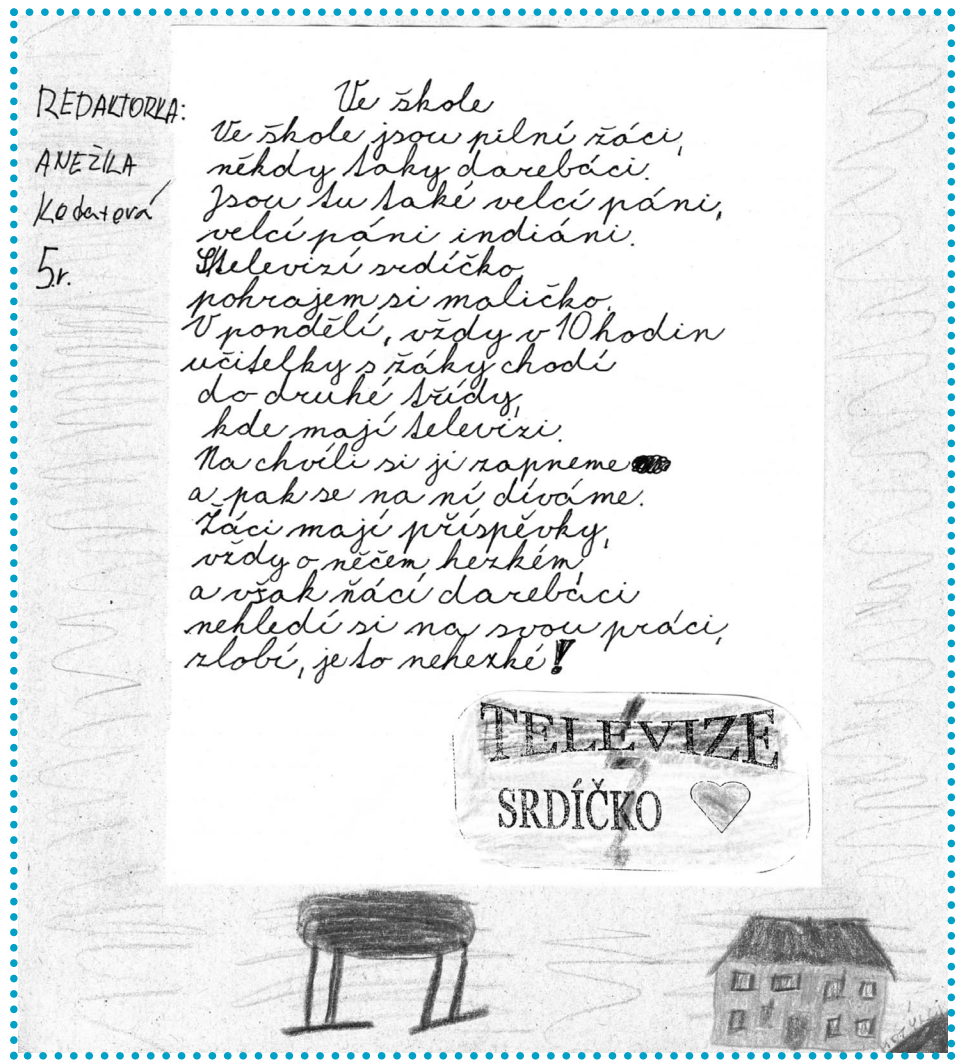 REDAKTORKA:
ANEŽKA
Kodatová
5.r.
Ve škole
Ve škole jsou pilní žáci,
někdy taky darebáci.
Jsou tu také velcí páni,
velcí páni indiáni.
S televizí srdíčko,
pohrajem si maličko.
V pondělí, vždy v 10 hodin
učitelky s žáky chodí
do druhé třídy,
kde mají televizi.
Na chvíli si ji zapneme
a pak se na ní díváme.
Žáci mají příspěvky,
vždy o něčem hezkém,
a však ňácí darebáci
nehledí si na svou práci,
zlobí, je to nehezké!
TELEVIZE
SRDÍČKO